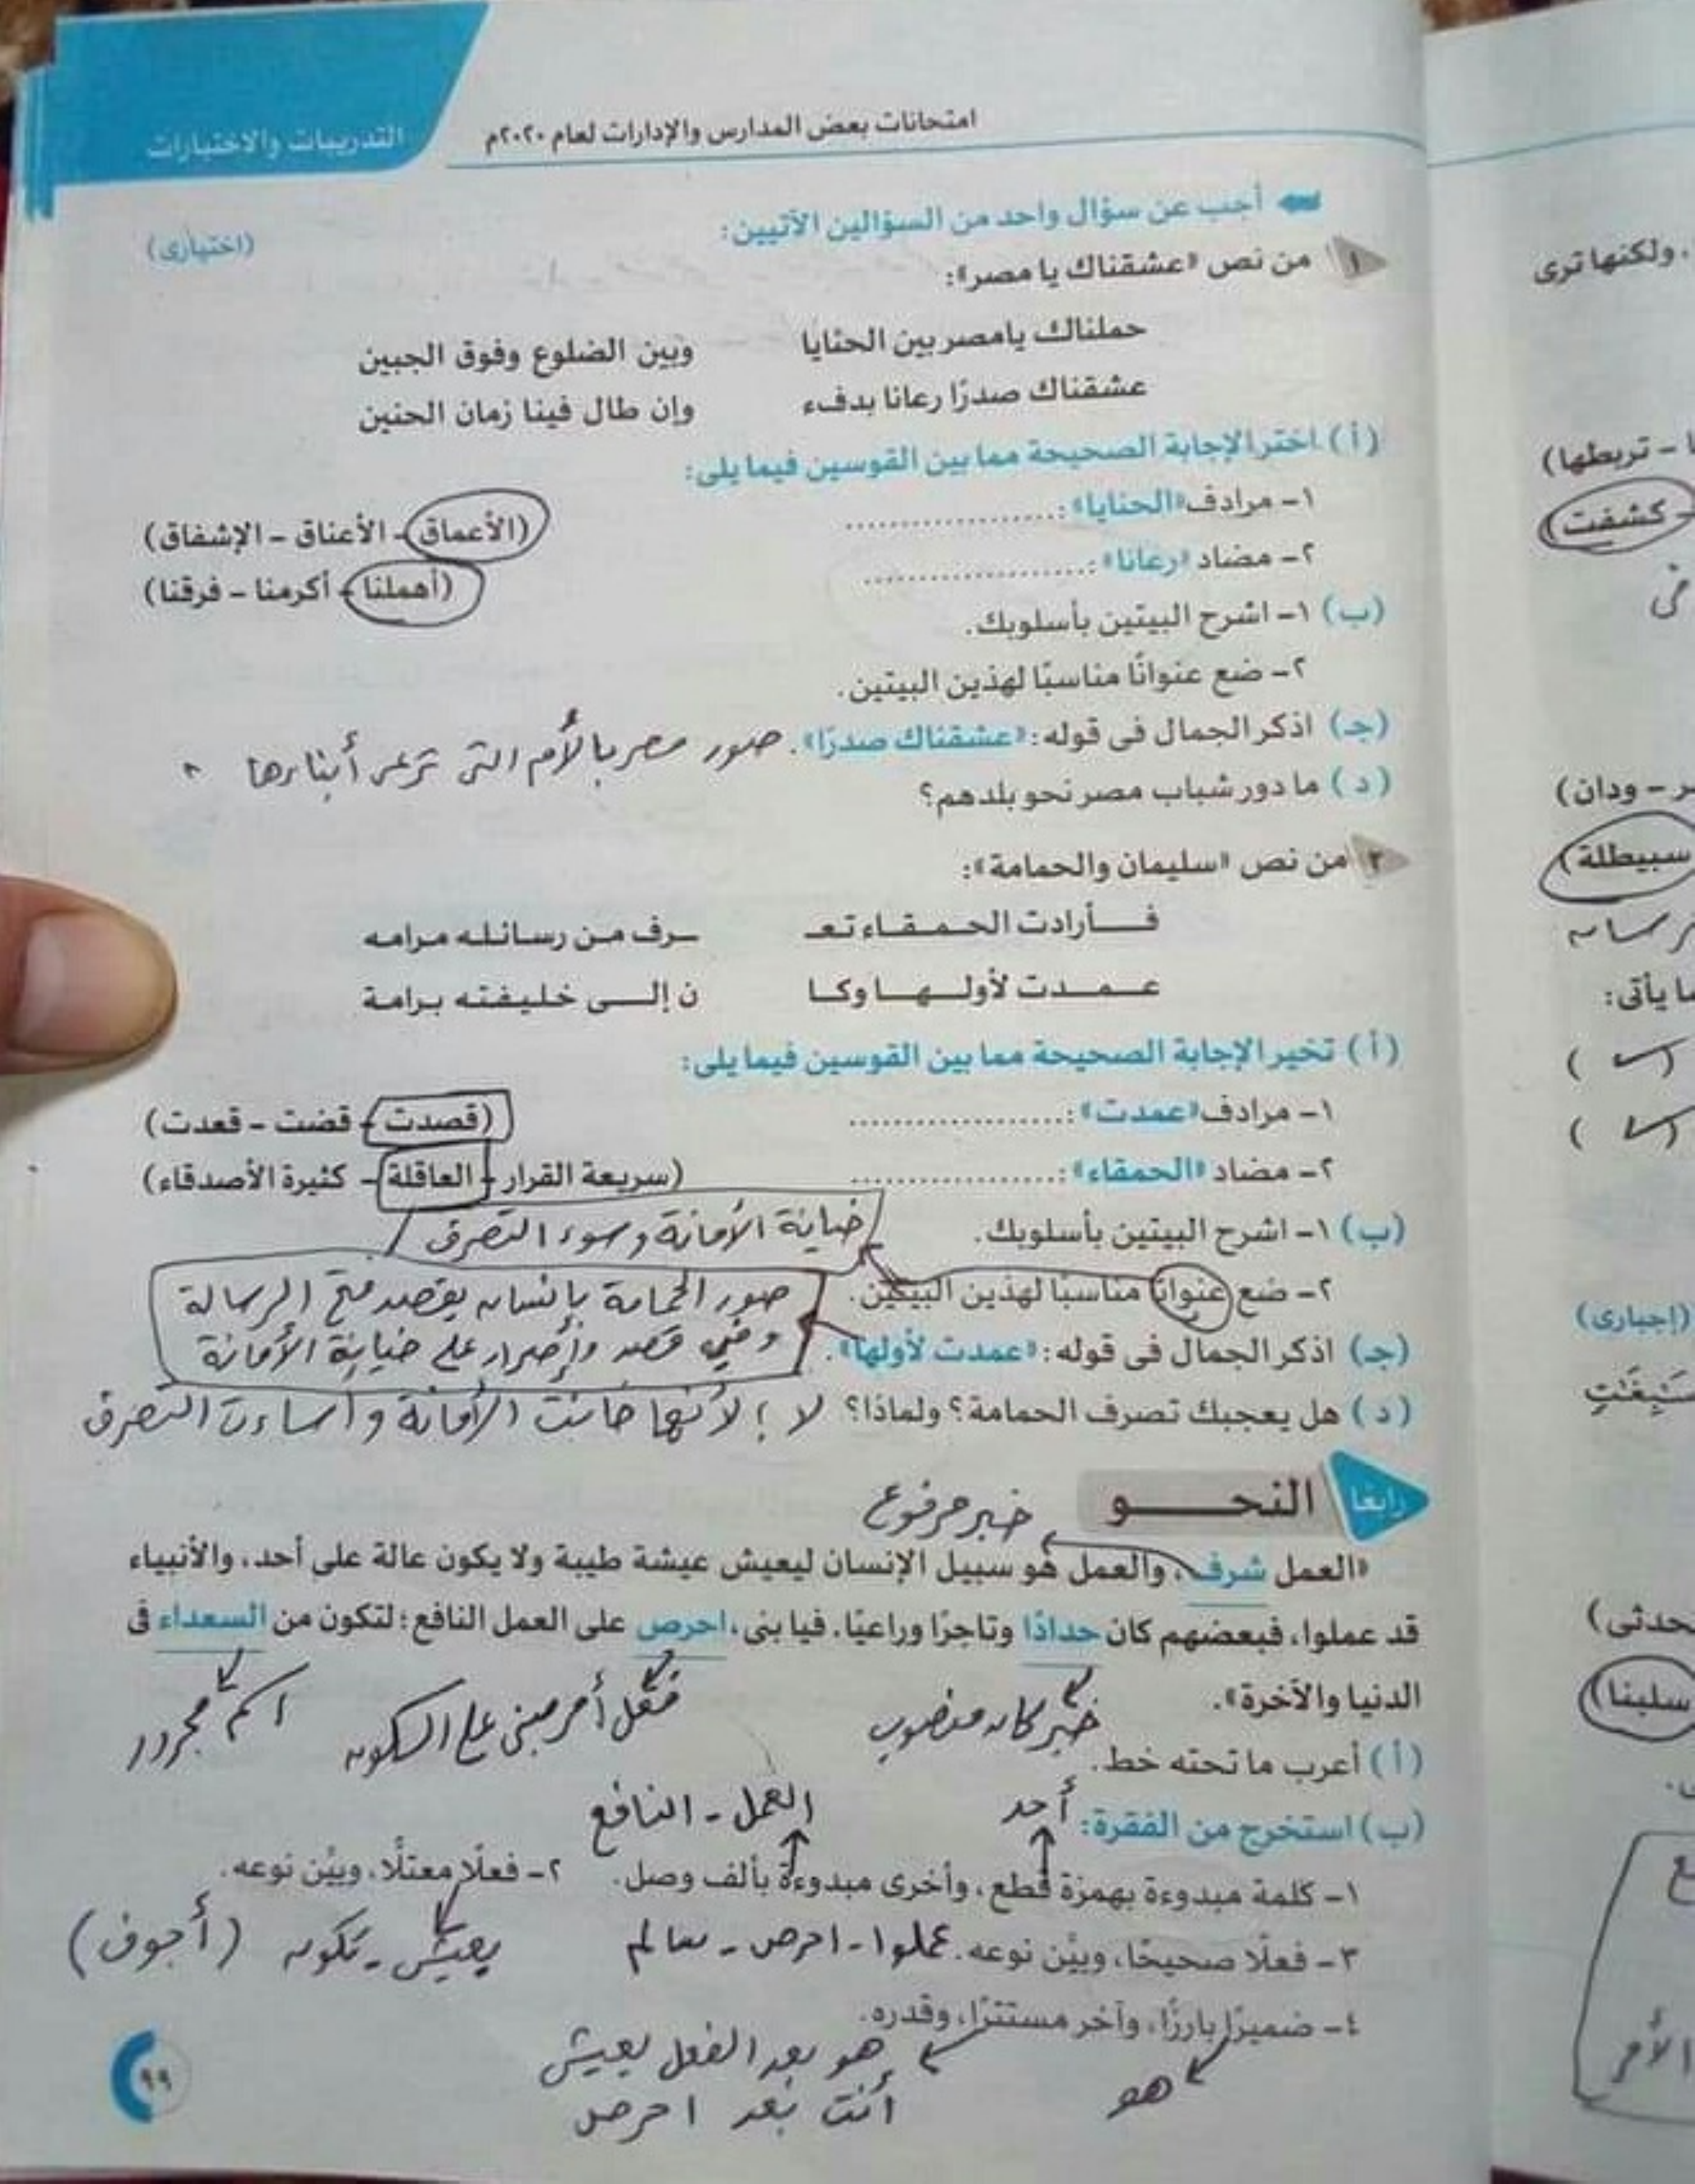 امتحانات بعض المدارس والإدارات لعام ٢٠٢٠م
التدريبات والاختبارات
أجب عن سؤال واحد من السؤالين الآتيين: (اختيارى)
١ من نص «عشقناك يا مصر»:
حملناك يامصر بين الحنايا وبين الضلوع وفوق الجبين
عشقناك صدرًا رعانا بدفء وإن طال فينا زمان الحنين
(أ) اختر الإجابة الصحيحة مما بين القوسين فيما يلى:
١- مرادف «الحنايا»: .................... (الأعماق - الأعناق - الإشفاق)
٢- مضاد «رعانا»: .................... (أهملنا - أكرمنا - فرقنا)
(ب) ١- اشرح البيتين بأسلوبك.
٢- ضع عنوانًا مناسبًا لهذين البيتين.
(جـ) اذكر الجمال فى قوله: «عشقناك صدرًا». صور مصر بالأم التى ترعى أبناءها
(د) ما دور شباب مصر نحو بلدهم؟
٢ من نص «سليمان والحمامة»:
فـأرادت الحمقاء تعـ ـرف من رسائله مرامه
عمدت لأولها وكا ن إلى خليفته برامة
(أ) تخير الإجابة الصحيحة مما بين القوسين فيما يلى:
١- مرادف «عمدت»: .................... (قصدت - قضت - قعدت)
٢- مضاد «الحمقاء»: .................... (سريعة القرار - العاقلة - كثيرة الأصدقاء)
(ب) ١- اشرح البيتين بأسلوبك.
خيانة الأمانة وسوء التصرف
٢- ضع عنوانًا مناسبًا لهذين البيتين.
صور الحمامة بإنسان يقصد فتح الرسالة
وفي قصد وإصرار على خيانة الأمانة
(جـ) اذكر الجمال فى قوله: «عمدت لأولها».
(د) هل يعجبك تصرف الحمامة؟ ولماذا؟ لا؛ لأنها خانت الأمانة وأساءت التصرف
رابعا النحـــو
خبر مرفوع
«العمل شرف، والعمل هو سبيل الإنسان ليعيش عيشة طيبة ولا يكون عالة على أحد، والأنبياء
قد عملوا، فبعضهم كان حدادًا وتاجرًا وراعيًا. فيا بنى، احرص على العمل النافع؛ لتكون من السعداء فى
الدنيا والآخرة».
خبر كان منصوب
فعل أمر مبنى على السكون
اسم مجرور
(أ) أعرب ما تحته خط.
(ب) استخرج من الفقرة:
أحد
العمل - النافع
١- كلمة مبدوءة بهمزة قطع، وأخرى مبدوءة بألف وصل. ٢- فعلًا معتلًّا، وبيِّن نوعه.
يعيش - تكون (أجوف)
٣- فعلًا صحيحًا، وبيِّن نوعه. عملوا - احرص - سالم
٤- ضميرًا بارزًا، وآخر مستترًا، وقدره.
هو
هو بعد الفعل يعيش
أنت بعد احرص
٩٩
، ولكنها ترى
- تربطها)
- كشفت)
فى
ـر - ودان)
سبيطلة)
ما يأتى:
( )
( )
(إجبارى)
ـحدثى)
سلبنا)
الأمر